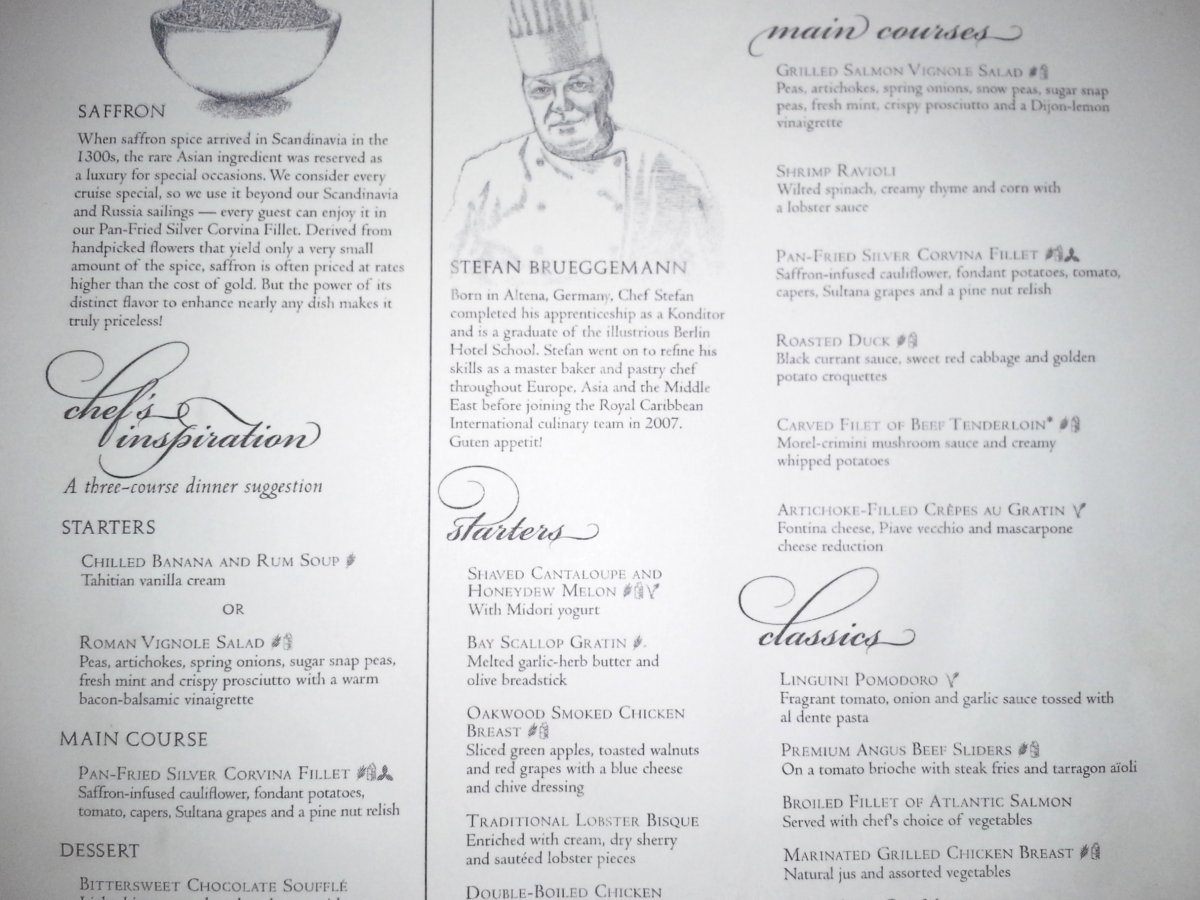 SAFFRON
When saffron spice arrived in Scandinavia in the
1300s, the rare Asian ingredient was reserved as
a luxury for special occasions. We consider every
cruise special, so we use it beyond our Scandinavia
and Russia sailings — every guest can enjoy it in
our Pan-Fried Silver Corvina Fillet. Derived from
handpicked flowers that yield only a very small
amount of the spice, saffron is often priced at rates
higher than the cost of gold. But the power of its
distinct flavor to enhance nearly any dish makes it
truly priceless!
chef's
inspiration
A three-course dinner suggestion
STARTERS
CHILLED BANANA AND RUM SOUP
Tahitian vanilla cream
OR
ROMAN VIGNOLE SALAD
Peas, artichokes, spring onions, sugar snap peas,
fresh mint and crispy prosciutto with a warm
bacon-balsamic vinaigrette
MAIN COURSE
PAN-FRIED SILVER CORVINA FILLET
Saffron-infused cauliflower, fondant potatoes,
tomato, capers, Sultana grapes and a pine nut relish
DESSERT
BITTERSWEET CHOCOLATE SOUFFLÉ
STEFAN BRUEGGEMANN
Born in Altena, Germany, Chef Stefan
completed his apprenticeship as a Konditor
and is a graduate of the illustrious Berlin
Hotel School. Stefan went on to refine his
skills as a master baker and pastry chef
throughout Europe, Asia and the Middle
East before joining the Royal Caribbean
International culinary team in 2007.
Guten appetit!
starters
SHAVED CANTALOUPE AND
HONEYDEW MELON
With Midori yogurt
BAY SCALLOP GRATIN
Melted garlic-herb butter and
olive breadstick
OAKWOOD SMOKED CHICKEN
BREAST
Sliced green apples, toasted walnuts
and red grapes with a blue cheese
and chive dressing
TRADITIONAL LOBSTER BISQUE
Enriched with cream, dry sherry
and sautéed lobster pieces
DOUBLE-BOILED CHICKEN
main courses
GRILLED SALMON VIGNOLE SALAD
Peas, artichokes, spring onions, snow peas, sugar snap
peas, fresh mint, crispy prosciutto and a Dijon-lemon
vinaigrette
SHRIMP RAVIOLI
Wilted spinach, creamy thyme and corn with
a lobster sauce
PAN-FRIED SILVER CORVINA FILLET
Saffron-infused cauliflower, fondant potatoes, tomato,
capers, Sultana grapes and a pine nut relish
ROASTED DUCK
Black currant sauce, sweet red cabbage and golden
potato croquettes
CARVED FILET OF BEEF TENDERLOIN*
Morel-crimini mushroom sauce and creamy
whipped potatoes
ARTICHOKE-FILLED CRÊPES AU GRATIN
Fontina cheese, Piave vecchio and mascarpone
cheese reduction
classics
LINGUINI POMODORO
Fragrant tomato, onion and garlic sauce tossed with
al dente pasta
PREMIUM ANGUS BEEF SLIDERS
On a tomato brioche with steak fries and tarragon aïoli
BROILED FILLET OF ATLANTIC SALMON
Served with chef's choice of vegetables
MARINATED GRILLED CHICKEN BREAST
Natural jus and assorted vegetables